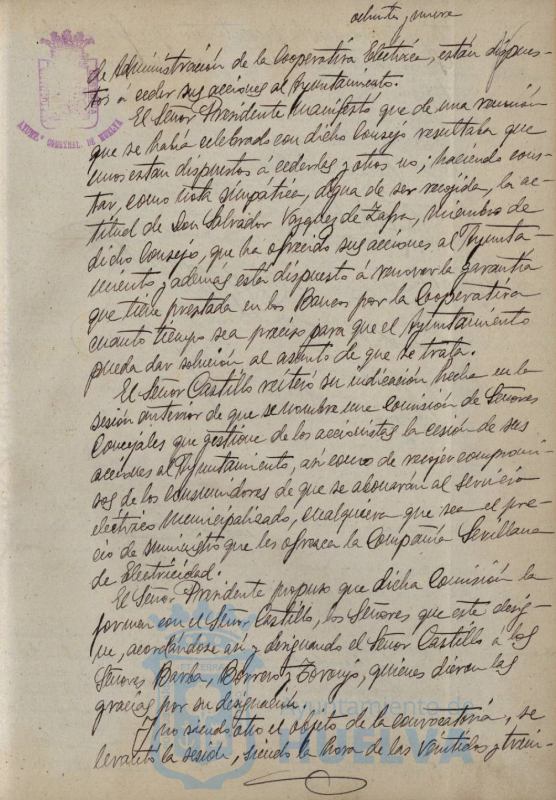 ochenta y nueve
de Administración de la Cooperativa Electrica, están dispues-
tos á ceder sus acciones al Ayuntamiento.
El Señor Presidente manifestó que de una reunión
que se habia celebrado con dicho Consejo resultaba que
unos estan dispuestos á cederlas y otros no; haciendo cons-
tar, como nota simpatica, digna de ser recogida, la ac-
titud de Don Salvador Vazquez de Zafra, miembro de
dicho Consejo, que ha ofrecido sus acciones al Ayunta-
miento y ademas está dispuesto á renovar la garantia
que tiene prestada en los Bancos por la Cooperativa
cuanto tiempo sea preciso para que el Ayuntamiento
pueda dar solución al asunto de que se trata.
El Señor Castillo reiteró su indicación hecha en la
sesión anterior de que se nombre una Comisión de Señores
Concejales que gestione de los accionistas la cesión de sus
acciones al Ayuntamiento, asi como de recojer compromi-
sos de los consumidores de que se abonarán al Servicio
eléctrico Municipalizado, cualquiera que sea el pre-
cio de suministro que les ofrezca la Compañia Sevillana
de Electricidad.
El Señor Presidente propuso que dicha Comisión la
formen con el Señor Castillo, los Señores que este desig-
ne, acordandose asi y designando el Señor Castillo á los
Señores Barba, Borrero y Toronjo, quienes dieron las
gracias por su designación.
Y no siendo otro el objeto de la convocatoria, se
levantó la sesión, siendo la hora de las veintidos y trein-
AYUNT.º CONSTNAL. DE HUELVA
Ayuntamiento de
HUELVA